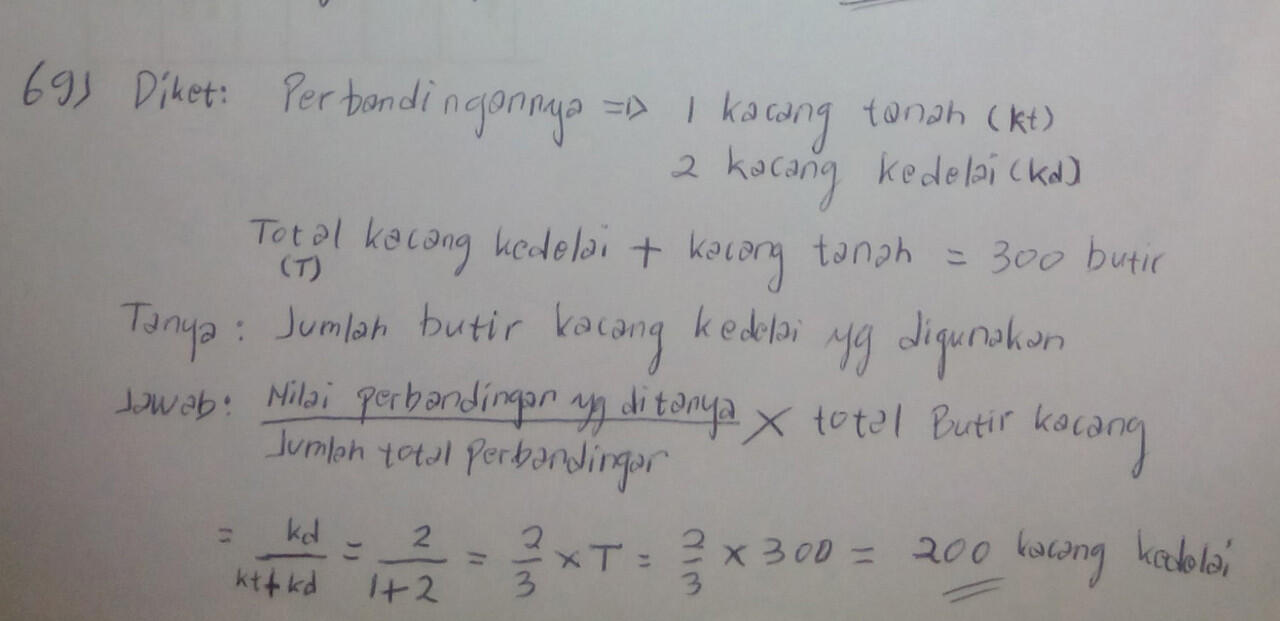 69) Diket: Perbandingannya => 1 kacang tanah (kt)
2 kacang kedelai (kd)
Total kacang kedelai + kacang tanah = 300 butir
(T)
Tanya: Jumlah butir kacang kedelai yg digunakan
Jawab: Nilai perbandingan yg ditanya × total Butir kacang
Jumlah total Perbandingan
= kd = 2 = 2 × T = 2 × 300 = 200 kacang kedelai
kt+kd 1+2 3 3